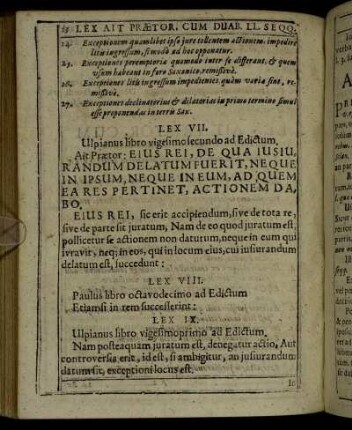 LEX AIT PRÆTOR, CUM DUAB. LL. SEQQ.
24. Exceptionem quamlibet ipso jure tollentem actionem, impedire
litis ingressum, si modo ad hoc opponatur.
25. Exceptiones peremptoriæ quomodo inter se differant, & quem
usum habeant in foro Saxonico, remissivè.
26. Exceptiones litis ingressum impedientes, quàm variæ sint, re-
missivè.
27. Exceptiones declinatorias & dilatorias in primo termino simul
esse proponendas in terris Sax.
LEX VII.
Ulpianus libro vigesimosecundo ad Edictum.
Ait Prætor: EIUS REI, DE QUA IUSIU-
RANDUM DELATUM FUERIT, NEQUE
IN IPSUM, NEQUE IN EUM, AD QUEM
EA RES PERTINET, ACTIONEM DA-
BO.
EIUS REI, sic erit accipiendum, sive de tota re,
sive de parte sit juratum, Nam de eo quod juratum est,
pollicetur se actionem non daturum, neque in eum qui
ivravit, neq; in eos, qui in locum eius, cui iusiurandum
delatum est, succedunt:
LEX VIII.
Paulus libro octavodecimo ad Edictum
Etiamsi in rem successerint:
LEX IX.
Ulpianus libro vigesimoprimo ad Edictum,
Nam posteaquam juratum est, denegatur actio, Aut
controversia erit, id est, si ambigitur, an iusiurandum
datum sit, exceptioni locus est.